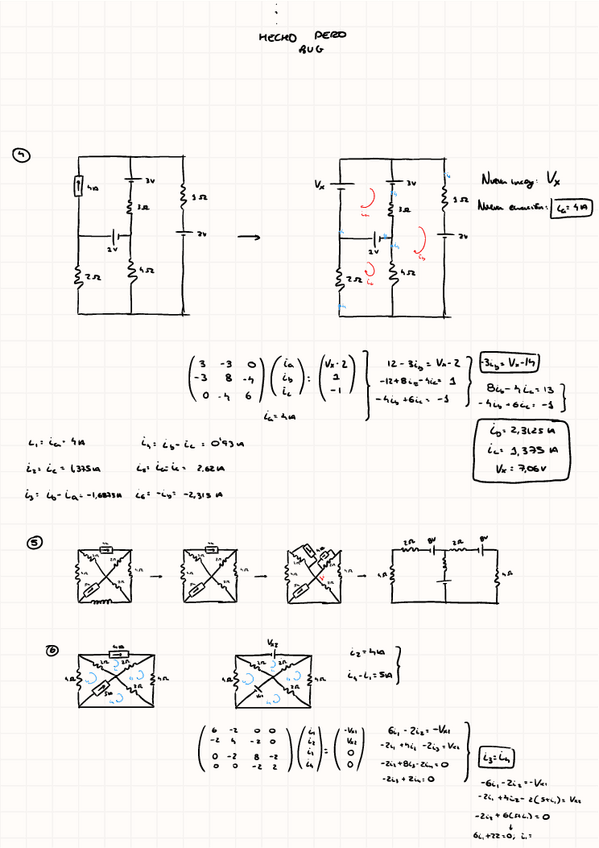 HECHO PERO
BUG
4
4A
3V
3Ω
1Ω
2V
2Ω
4Ω
Vx
3V
3Ω
1Ω
2V
2Ω
4Ω
Nueva incóg: Vx
Nueva ecuación: ia = 4A
3 -3 0
-3 8 -4
0 -4 6
ia
ib
ic
=
Vx-2
1
-1
ia = 4A
12 - 3ib = Vx - 2
-12 + 8ib - 4ic = 1
-4ib + 6ic = -1
-3ib = Vx - 14
8ib - 4ic = 13
-4ib + 6ic = -1
ib = 2,3125 A
ic = 1,375 A
Vx = 7,06V
i1 = ia = 4A
i4 = ib - ic = 0'93A
i2 = ic = 1,375A
i5 = ia - ic = 2,62A
i3 = ib - ia = -1,6875A
i6 = -ib = -2,315A
5
2Ω
8V
2Ω
8V
4Ω
4Ω
6
4A
4Ω
2Ω
2Ω
2Ω
4Ω
Vx2
4Ω
2Ω
2Ω
2Ω
4Ω
i2 = 4A
i4 - i1 = 5A
6 -2 0 0
-2 4 -2 0
0 -2 8 -2
0 0 -2 2
i1
i2
i3
i4
=
-Vx1
Vx2
0
0
6i1 - 2i2 = -Vx1
-2i1 + 4i2 - 2i3 = Vx2
-2i2 + 8i3 - 2i4 = 0
-2i3 + 2i4 = 0
i3 = i4
-6i1 - 2i2 = -Vx1
-2i1 + 4i2 - 2(5+i1) = Vx2
-2i2 + 6(5+i1) = 0
6i1 + 22 = 0; i1 =